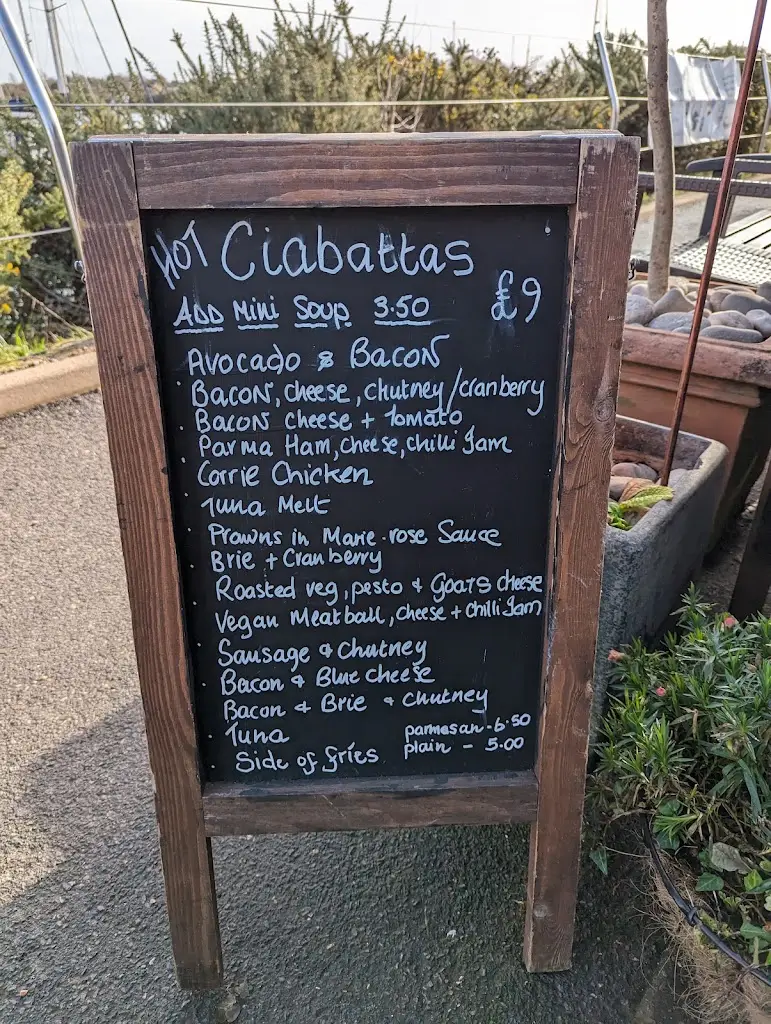 HOT Ciabattas
£9
ADD Mini Soup 3.50
Avocado & Bacon
Bacon, cheese, chutney/cranberry
Bacon cheese + Tomato
Parma Ham, cheese, chilli Jam
Corrie Chicken
Tuna Melt
Prawns in Marie-rose Sauce
Brie + Cranberry
Roasted veg, pesto & Goats cheese
Vegan Meatball, cheese + chilli Jam
Sausage & Chutney
Bacon & Blue cheese
Bacon & Brie & chutney
Tuna
Side of fries
parmesan - 6.50
plain - 5.00